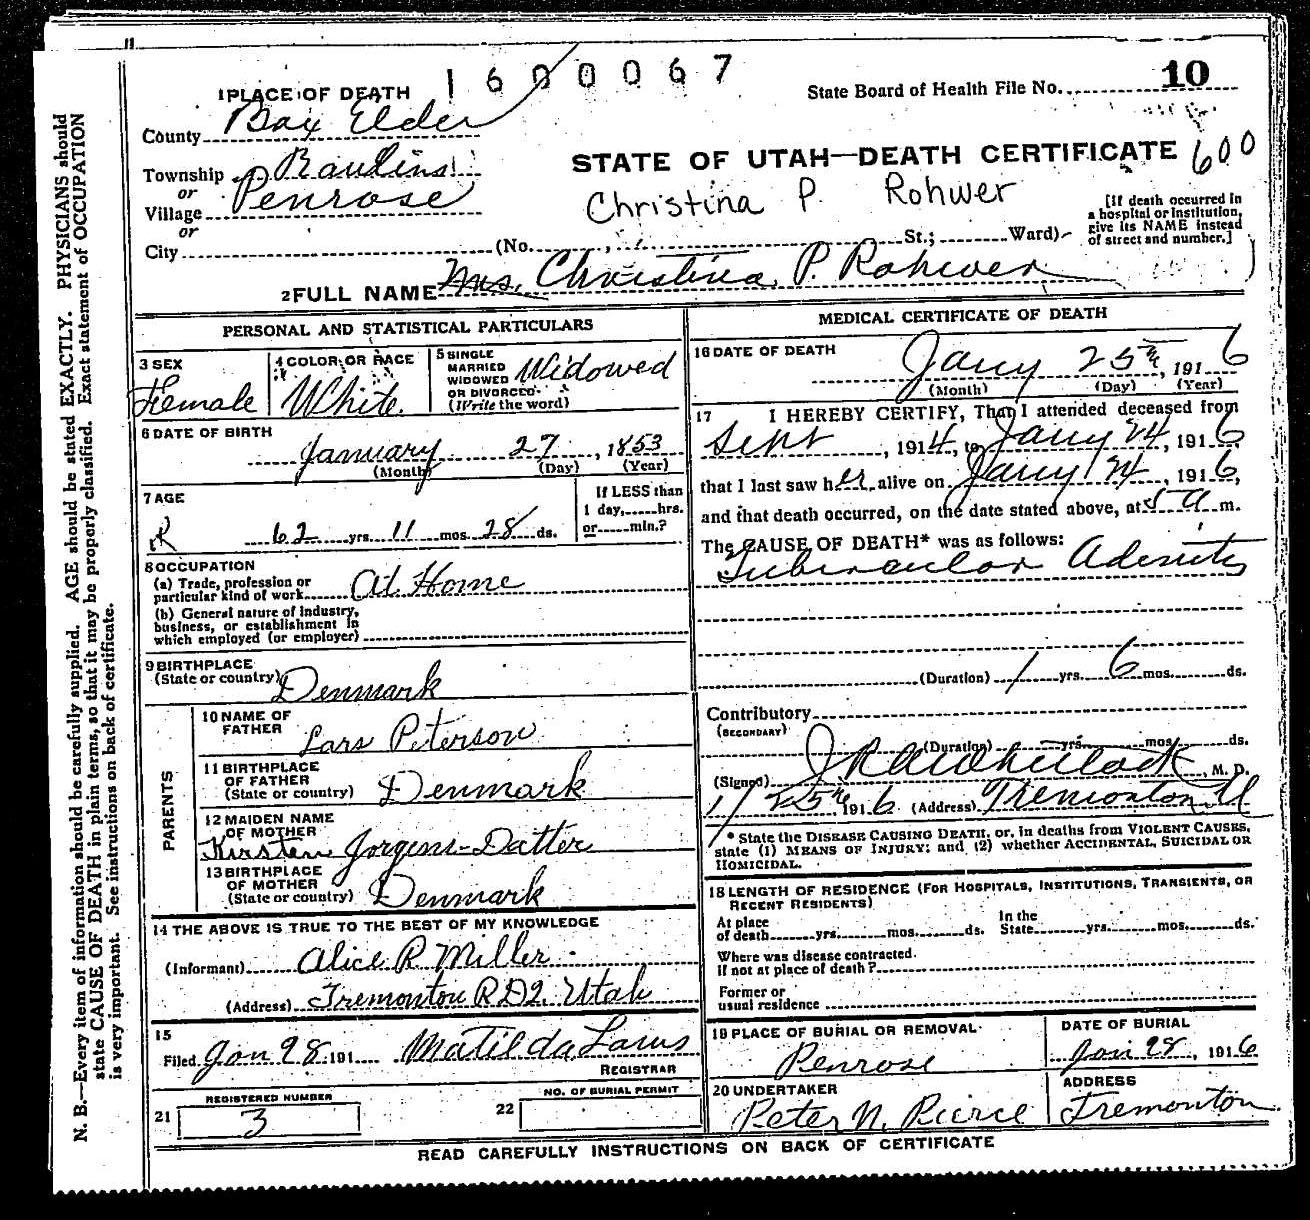 1600067
1 PLACE OF DEATH
State Board of Health File No. 10
County Box Elder
STATE OF UTAH—DEATH CERTIFICATE 600
Township
or
Village Penrose
Christina P. Rohwer
or
City (No. St.; Ward)
[If death occurred in
a hospital or institution,
give its NAME instead
of street and number.]
2 FULL NAME Mrs. Christina P. Rohwer
PERSONAL AND STATISTICAL PARTICULARS
3 SEX
Female
4 COLOR OR RACE
White
5 SINGLE
MARRIED
WIDOWED
OR DIVORCED
(Write the word)
Widowed
6 DATE OF BIRTH
January 27, 1853
(Month) (Day) (Year)
7 AGE
62 yrs. 11 mos. 28 ds.
If LESS than
1 day, hrs.
or min.?
8 OCCUPATION
(a) Trade, profession or
particular kind of work At Home
(b) General nature of industry,
business, or establishment in
which employed (or employer)
9 BIRTHPLACE
(State or country) Denmark
PARENTS
10 NAME OF
FATHER Lars Peterson
11 BIRTHPLACE
OF FATHER
(State or country) Denmark
12 MAIDEN NAME
OF MOTHER
Kirsten Jorgens-Datter
13 BIRTHPLACE
OF MOTHER
(State or country) Denmark
14 THE ABOVE IS TRUE TO THE BEST OF MY KNOWLEDGE
(Informant) Alice R Miller
(Address) Tremonton R D 2. Utah
15
Filed Jan 28 191 Matilda
REGISTRAR
REGISTERED NUMBER
21 3
NO. OF BURIAL PERMIT
22
MEDICAL CERTIFICATE OF DEATH
16 DATE OF DEATH
Jany 25th, 1916
(Month) (Day) (Year)
17 I HEREBY CERTIFY, That I attended deceased from
Sept, 1914, to Jany 24, 1916
that I last saw her alive on Jany 24, 1916,
and that death occurred, on the date stated above, at 5 a m.
The CAUSE OF DEATH* was as follows:
Tubercular Adenitis
(Duration) 1 yrs. 6 mos. ds.
Contributory
(SECONDARY)
(Duration) yrs. mos. ds.
(Signed) M. D.
1/25th 1916 (Address) Tremonton, U
* State the DISEASE CAUSING DEATH, or, in deaths from VIOLENT CAUSES,
state (1) MEANS OF INJURY; and (2) whether ACCIDENTAL, SUICIDAL OR
HOMICIDAL.
18 LENGTH OF RESIDENCE (FOR HOSPITALS, INSTITUTIONS, TRANSIENTS, OR
RECENT RESIDENTS)
At place
of death yrs. mos. ds.
In the
State yrs. mos. ds.
Where was disease contracted
if not at place of death?
Former or
usual residence
19 PLACE OF BURIAL OR REMOVAL
Penrose
DATE OF BURIAL
Jan 28, 1916
20 UNDERTAKER
Peter N. Pierce
ADDRESS
Tremonton
READ CAREFULLY INSTRUCTIONS ON BACK OF CERTIFICATE
N. B.—Every item of information should be carefully supplied. AGE should be stated EXACTLY. PHYSICIANS should
state CAUSE OF DEATH in plain terms, so that it may be properly classified. Exact statement of OCCUPATION
is very important. See instructions on back of certificate.